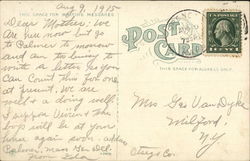 Aug 9, 1915
THIS SPACE FOR WRITING MESSAGES
POST CARD
THIS SPACE FOR ADDRESS ONLY
Dear Mother; We
are here now but go
to Palmer to morrow
and am to busy to
write a letter. So you
can count this for one
at present, we are
well & a doing well.
I suppose Vincent the
boys will be at your
house again soon. address
Palmer, Mass Gen. Del.
From
Mrs. Geo Van Dyke
Milford,
NY
Otsego Co.